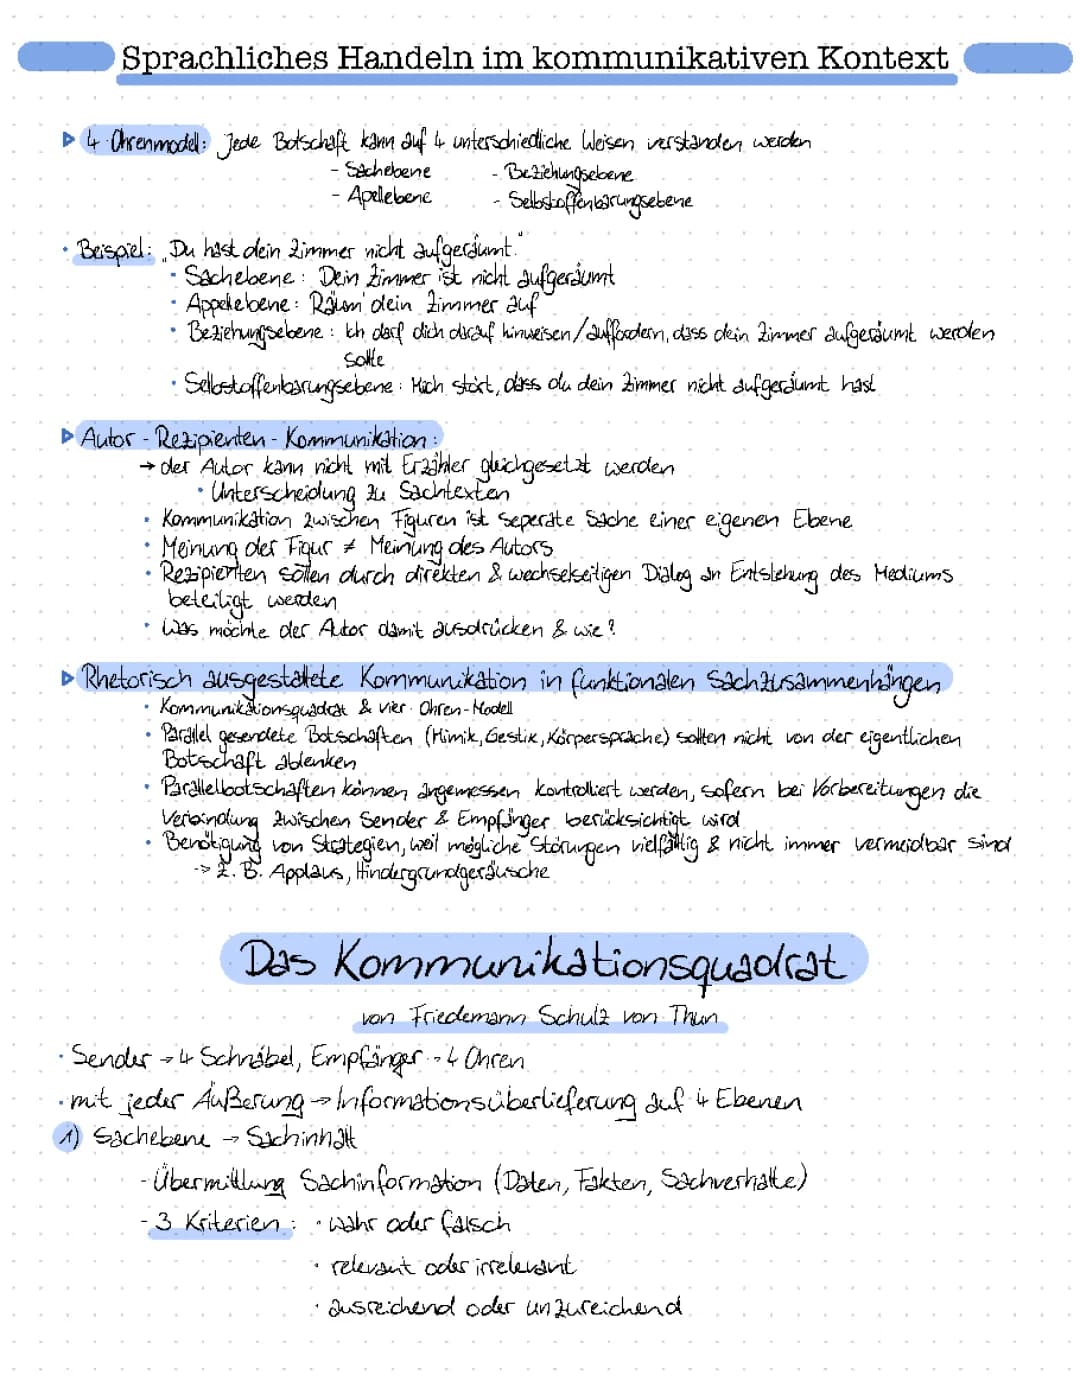 Sprachliches Handeln im kommunikativen Kontext
4 Ohrenmodell: Jede Botschaft kann auf 4 unterschiedliche Weisen verstanden werden
- Sachebene - Beziehungsebene
- Apellebene - Selbstoffenbarungsebene
• Beispiel: „Du hast dein Zimmer nicht aufgeräumt."
• Sachebene: Dein Zimmer ist nicht aufgeräumt
• Appellebene: Räum' dein Zimmer auf
• Beziehungsebene: Ich darf dich darauf hinweisen/auffordern, dass dein Zimmer aufgeräumt werden
sollte
• Selbstoffenbarungsebene: Mich stört, dass du dein Zimmer nicht aufgeräumt hast
Autor - Rezipienten - Kommunikation:
→ der Autor kann nicht mit Erzähler gleichgesetzt werden
• Unterscheidung zu Sachtexten
• Kommunikation zwischen Figuren ist seperate Sache einer eigenen Ebene
• Meinung der Figur ≠ Meinung des Autors
• Rezipienten sollen durch direkten & wechselseitigen Dialog an Entstehung des Mediums
beteiligt werden
• Was möchte der Autor damit ausdrücken & wie?
Rhetorisch ausgestaltete Kommunikation in funktionalen Sachzusammenhängen
• Kommunikationsquadrat & vier-Ohren-Modell
• Parallel gesendete Botschaften (Mimik, Gestik, Körpersprache) sollten nicht von der eigentlichen
Botschaft ablenken
• Parallelbotschaften können angemessen kontrolliert werden, sofern bei Vorbereitungen die
Verbindung zwischen Sender & Empfänger berücksichtigt wird
• Benötigung von Strategien, weil mögliche Störungen vielfältig & nicht immer vermeidbar sind
-> z. B. Applaus, Hindergrundgeräusche
Das Kommunikationsquadrat
von Friedemann Schulz von Thun
• Sender → 4 Schnäbel, Empfänger → 4 Ohren
• mit jeder Äußerung → Informationsüberlieferung auf 4 Ebenen
1) Sachebene → Sachinhalt
- Übermittlung Sachinformation (Daten, Fakten, Sachverhalte)
- 3 Kriterien: • wahr oder falsch
• relevant oder irrelevant
• ausreichend oder unzureichend